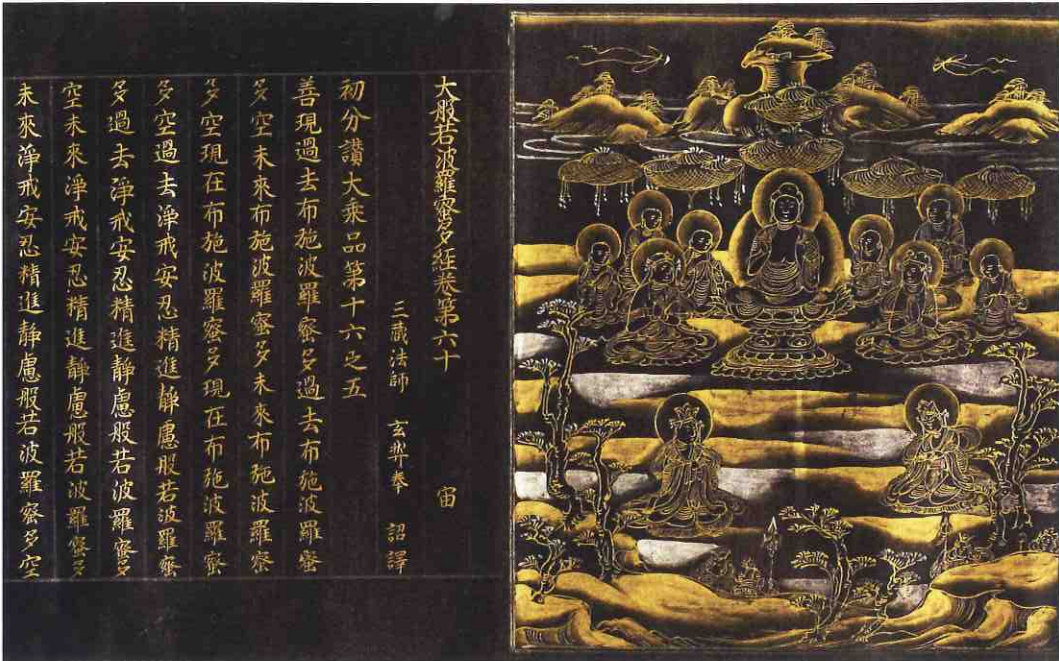 大般若波羅蜜多経巻第六十　宙
三蔵法師　玄奘奉　詔譯
初分讃大乗品第十六之五
善現過去布施波羅蜜多過去布施波羅蜜
多空未來布施波羅蜜多未來布施波羅蜜
多空現在布施波羅蜜多現在布施波羅蜜
多空過去淨戒安忍精進靜慮般若波羅蜜
多過去淨戒安忍精進靜慮般若波羅蜜多
空未來淨戒安忍精進靜慮般若波羅蜜多
未來淨戒安忍精進靜慮般若波羅蜜多空